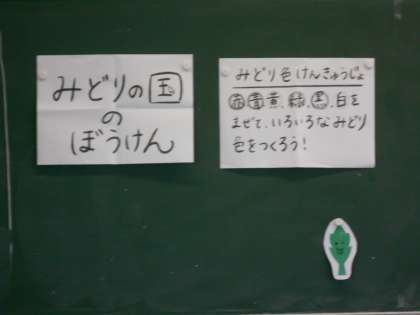 みどりの国
の
ぼうけん
みどり色けんきゅうじょ
赤青黄、緑、黒、白を
まぜて、いろいろなみどり
色をつくろう！